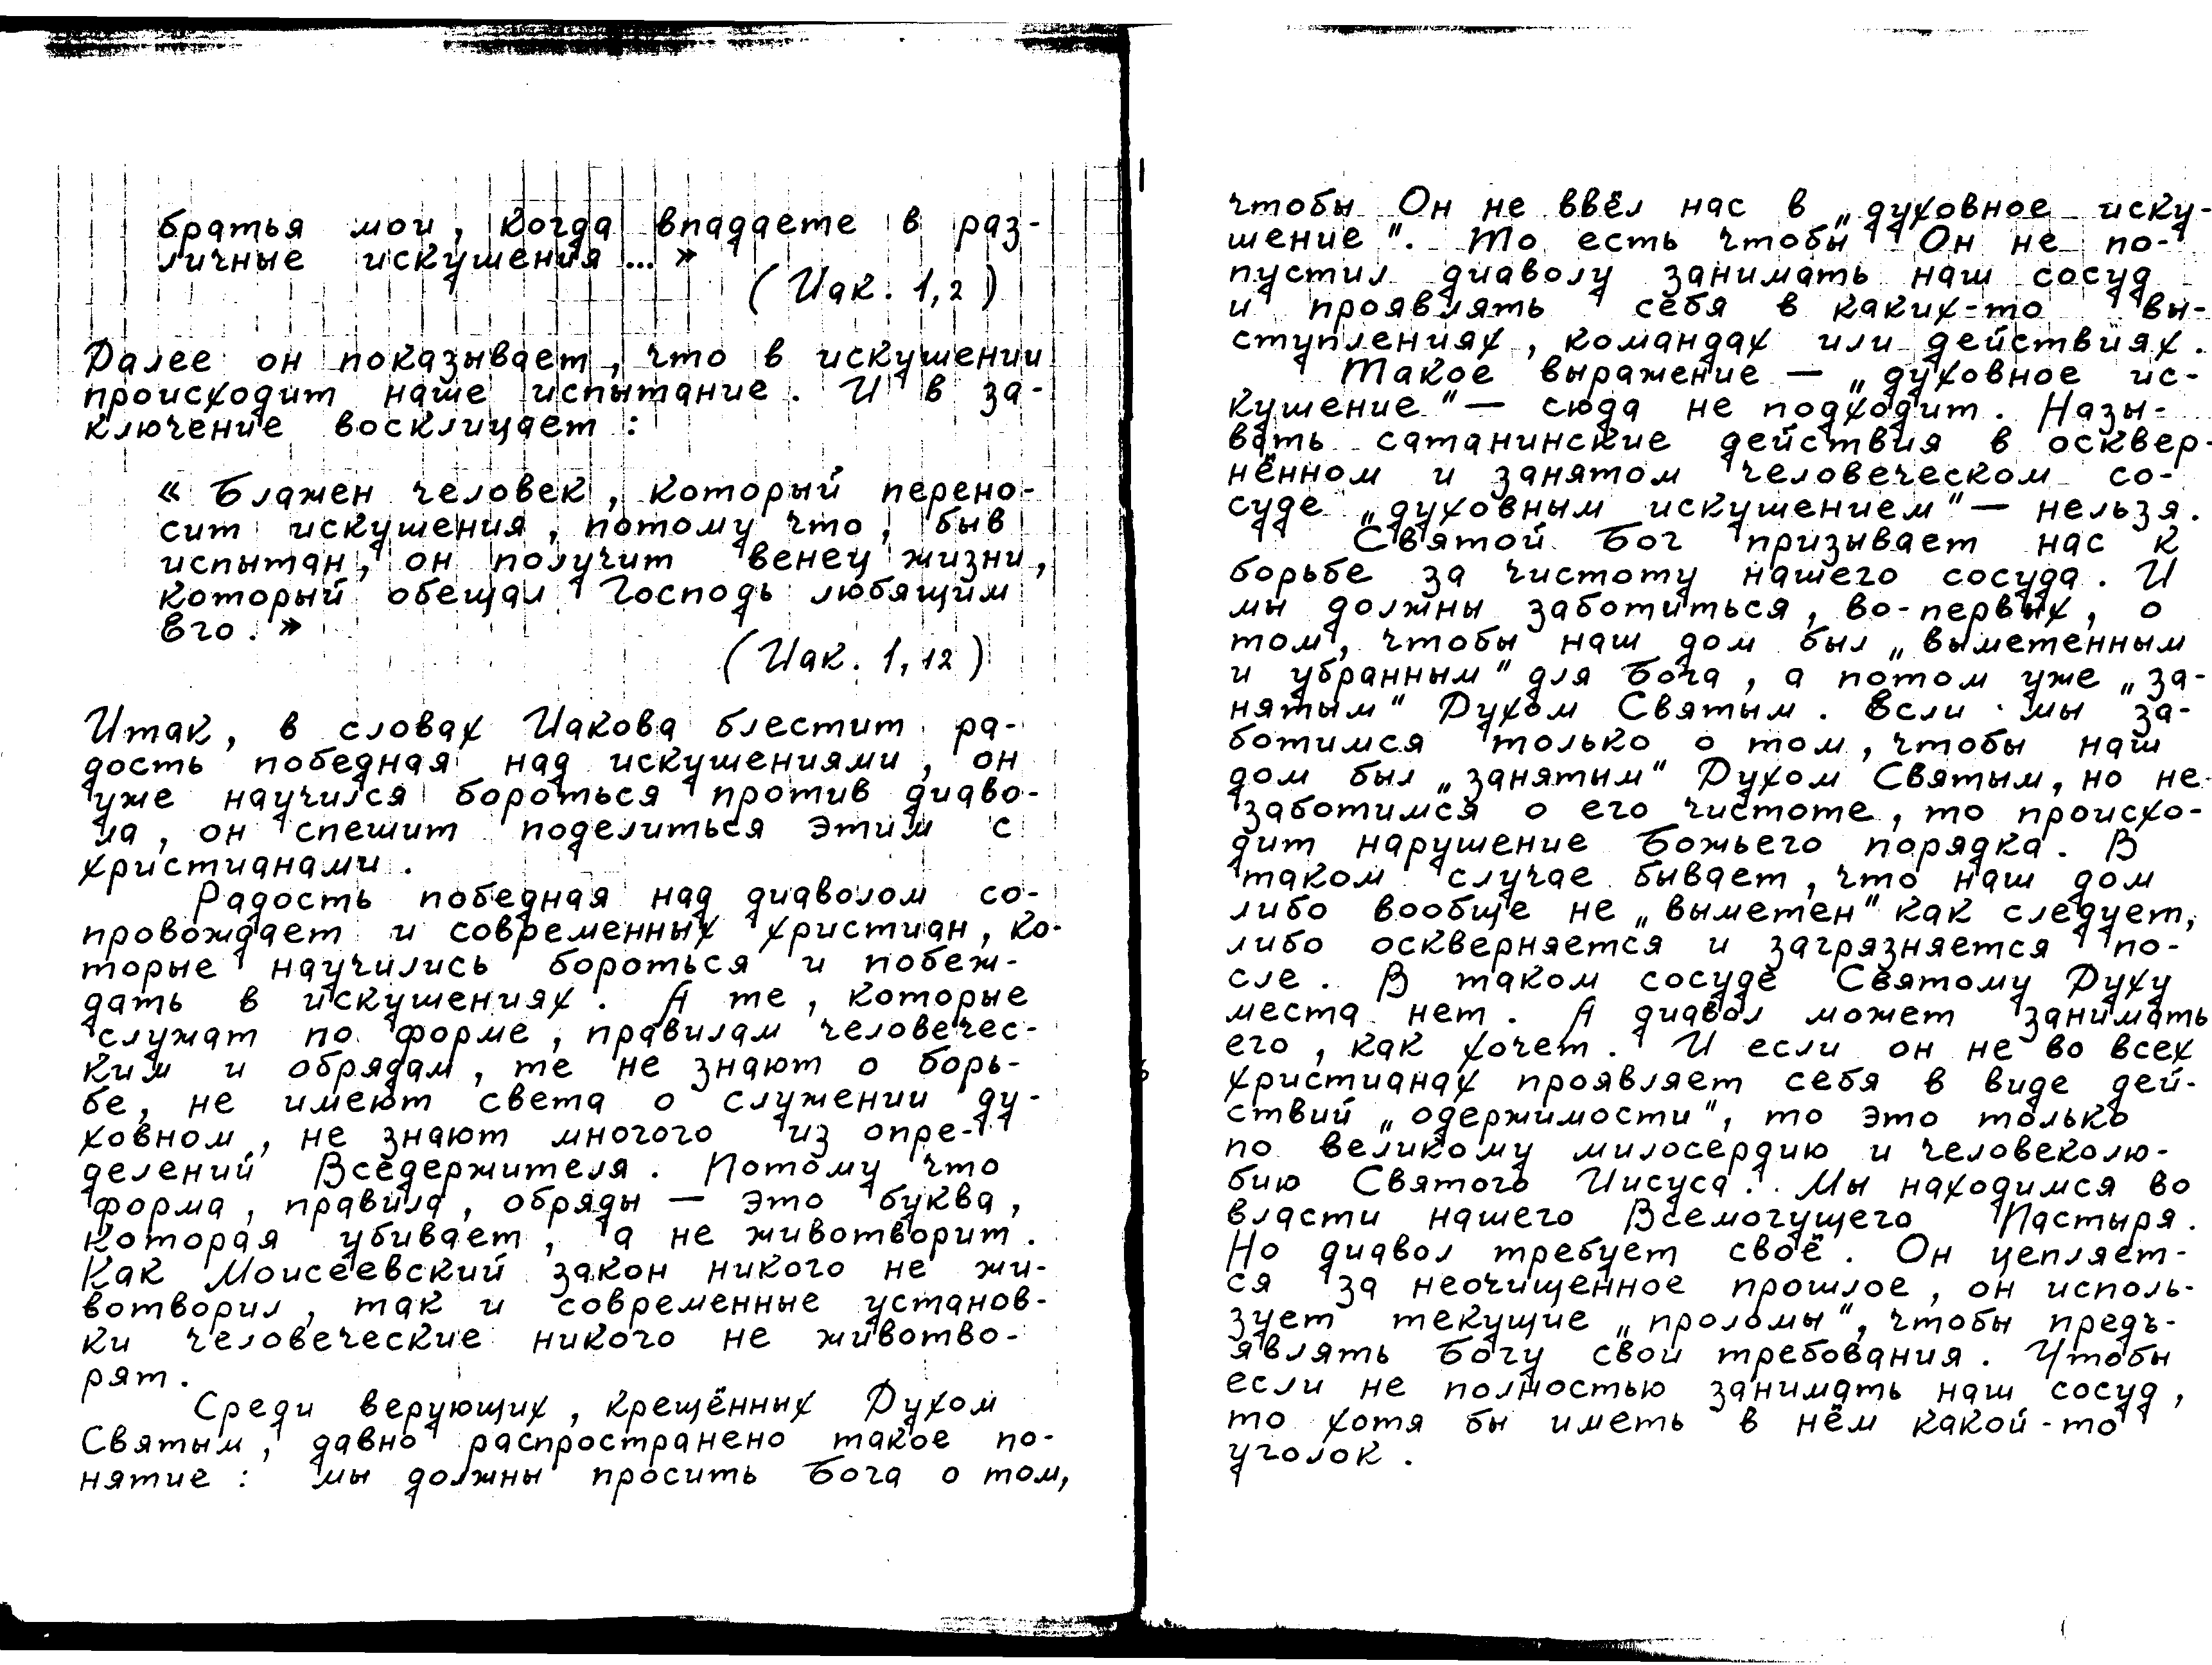 братья мои, когда впадаете в раз-
личные искушения ... »
(Иак. 1,2)
Далее он показывает, что в искушении
происходит наше испытание. И в за-
ключение восклицает:
« Блажен человек, который перено-
сит искушения, потому что, быв
испытан, он получит венец жизни,
который обещал Господь любящим
Его. »
(Иак. 1,12)
Итак, в словах Иакова блестит ра-
дость победная над искушениями, он
уже научился бороться против диаво-
ла, он спешит поделиться этим с
христианами.
Радость победная над диаволом со-
провождает и современных христиан, ко-
торые научились бороться и побеж-
дать в искушениях. А те, которые
служат по форме, правилам человечес-
ким и обрядам, те не знают о борь-
бе, не имеют света о служении ду-
ховном, не знают многого из опре-
делений Вседержителя. Потому что
форма, правила, обряды — это буква,
которая убивает, а не животворит.
Как Моисеевский закон никого не жи-
вотворил, так и современные установ-
ки человеческие никого не животво-
рят.
Среди верующих, крещённых Духом
Святым, давно распространено такое по-
нятие: мы должны просить Бога о том,
чтобы Он не ввёл нас в „духовное иску-
шение". То есть чтобы Он не по-
пустил диаволу занимать наш сосуд
и проявлять себя в каких-то вы-
ступлениях, командах или действиях.
Такое выражение — „духовное ис-
кушение" — сюда не подходит. Назы-
вать сатанинские действия в осквер-
нённом и занятом человеческом со-
суде „духовным искушением" — нельзя.
Святой Бог призывает нас к
борьбе за чистоту нашего сосуда. И
мы должны заботиться, во-первых, о
том, чтобы наш дом был „выметенным
и убранным" для Бога, а потом уже „за-
нятым" Духом Святым. Если мы за-
ботимся только о том, чтобы наш
дом был „занятым" Духом Святым, но не
заботимся о его чистоте, то происхо-
дит нарушение Божьего порядка. В
таком случае бывает, что наш дом
либо вообще не „выметен" как следует,
либо оскверняется и загрязняется по-
сле. В таком сосуде Святому Духу
места нет. А диавол может занимать
его, как хочет. И если он не во всех
христианах проявляет себя в виде дей-
ствий „одержимости", то это только
по великому милосердию и человеколю-
бию Святого Иисуса. Мы находимся во
власти нашего Всемогущего Пастыря.
Но диавол требует своё. Он цепляет-
ся за неочищенное прошлое, он исполь-
зует текущие „проломы", чтобы предъ-
являть Богу свои требования. Чтобы
если не полностью занимать наш сосуд,
то хотя бы иметь в нём какой-то
уголок.